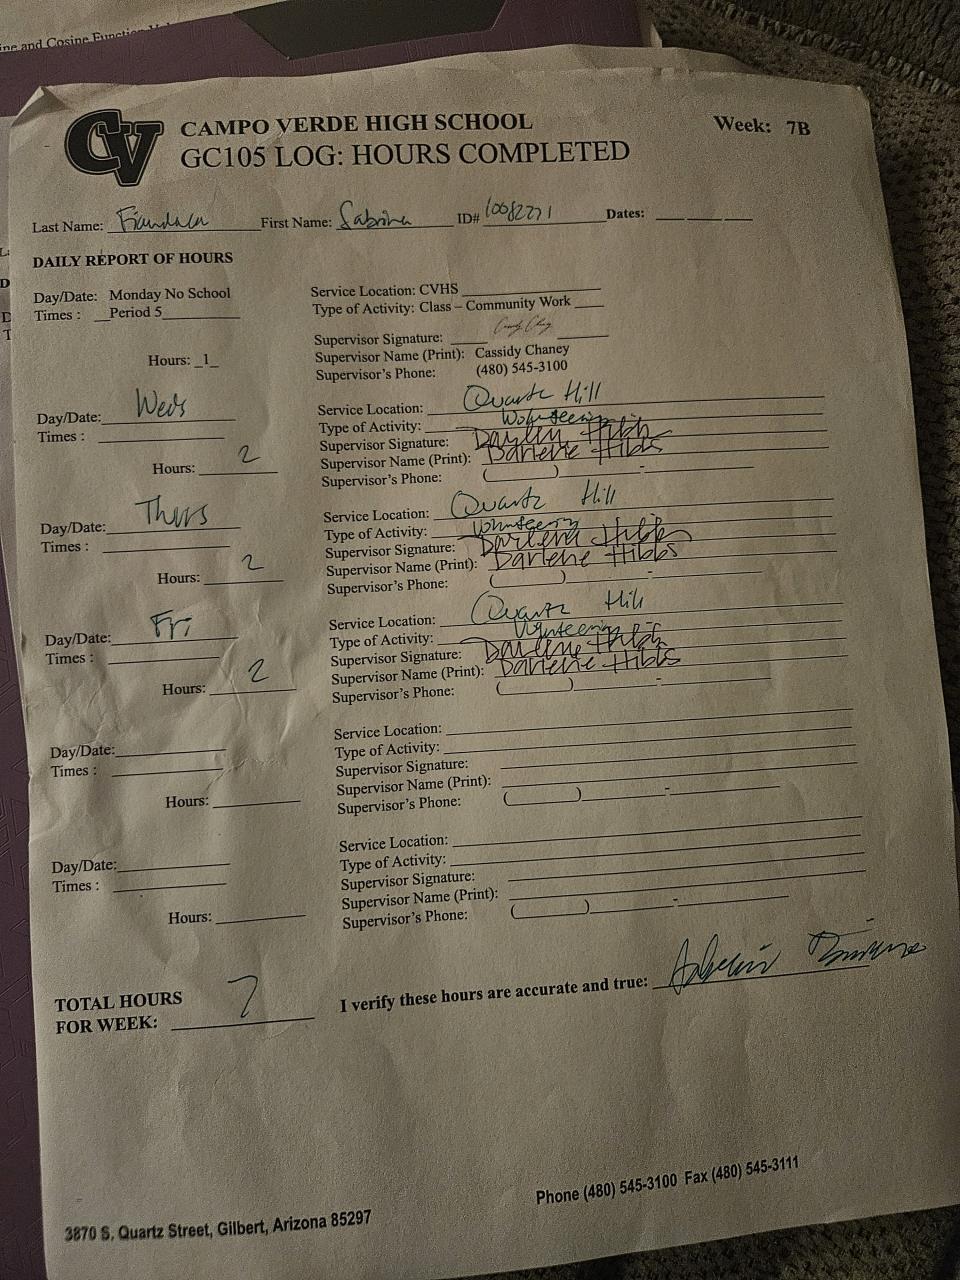 ine and Cosine Function
CV
CAMPO VERDE HIGH SCHOOL
Week: 7B
GC105 LOG: HOURS COMPLETED
Last Name: First Name: Sabrina ID# 10082271 Dates: ___ ___ ___
DAILY REPORT OF HOURS
Day/Date: Monday No School
Times : __Period 5
Hours: _1_
Service Location: CVHS
Type of Activity: Class – Community Work
Supervisor Signature:
Supervisor Name (Print): Cassidy Chaney
Supervisor's Phone: (480) 545-3100
Day/Date: Weds
Times :
Hours: 2
Service Location: Quartz Hill
Type of Activity: Volunteering
Supervisor Signature: Darlene Hibbs
Supervisor Name (Print): Darlene Hibbs
Supervisor's Phone: ( ) -
Day/Date: Thurs
Times :
Hours: 2
Service Location: Quartz Hill
Type of Activity: Volunteering
Supervisor Signature: Darlene Hibbs
Supervisor Name (Print): Darlene Hibbs
Supervisor's Phone: ( ) -
Day/Date: Fri
Times :
Hours: 2
Service Location: Quartz Hill
Type of Activity: Volunteering
Supervisor Signature: Darlene Hibbs
Supervisor Name (Print): Darlene Hibbs
Supervisor's Phone: ( ) -
Day/Date:
Times :
Hours:
Service Location:
Type of Activity:
Supervisor Signature:
Supervisor Name (Print):
Supervisor's Phone: ( ) -
Day/Date:
Times :
Hours:
Service Location:
Type of Activity:
Supervisor Signature:
Supervisor Name (Print):
Supervisor's Phone: ( ) -
TOTAL HOURS
FOR WEEK: 7
I verify these hours are accurate and true:
Phone (480) 545-3100 Fax (480) 545-3111
3870 S. Quartz Street, Gilbert, Arizona 85297